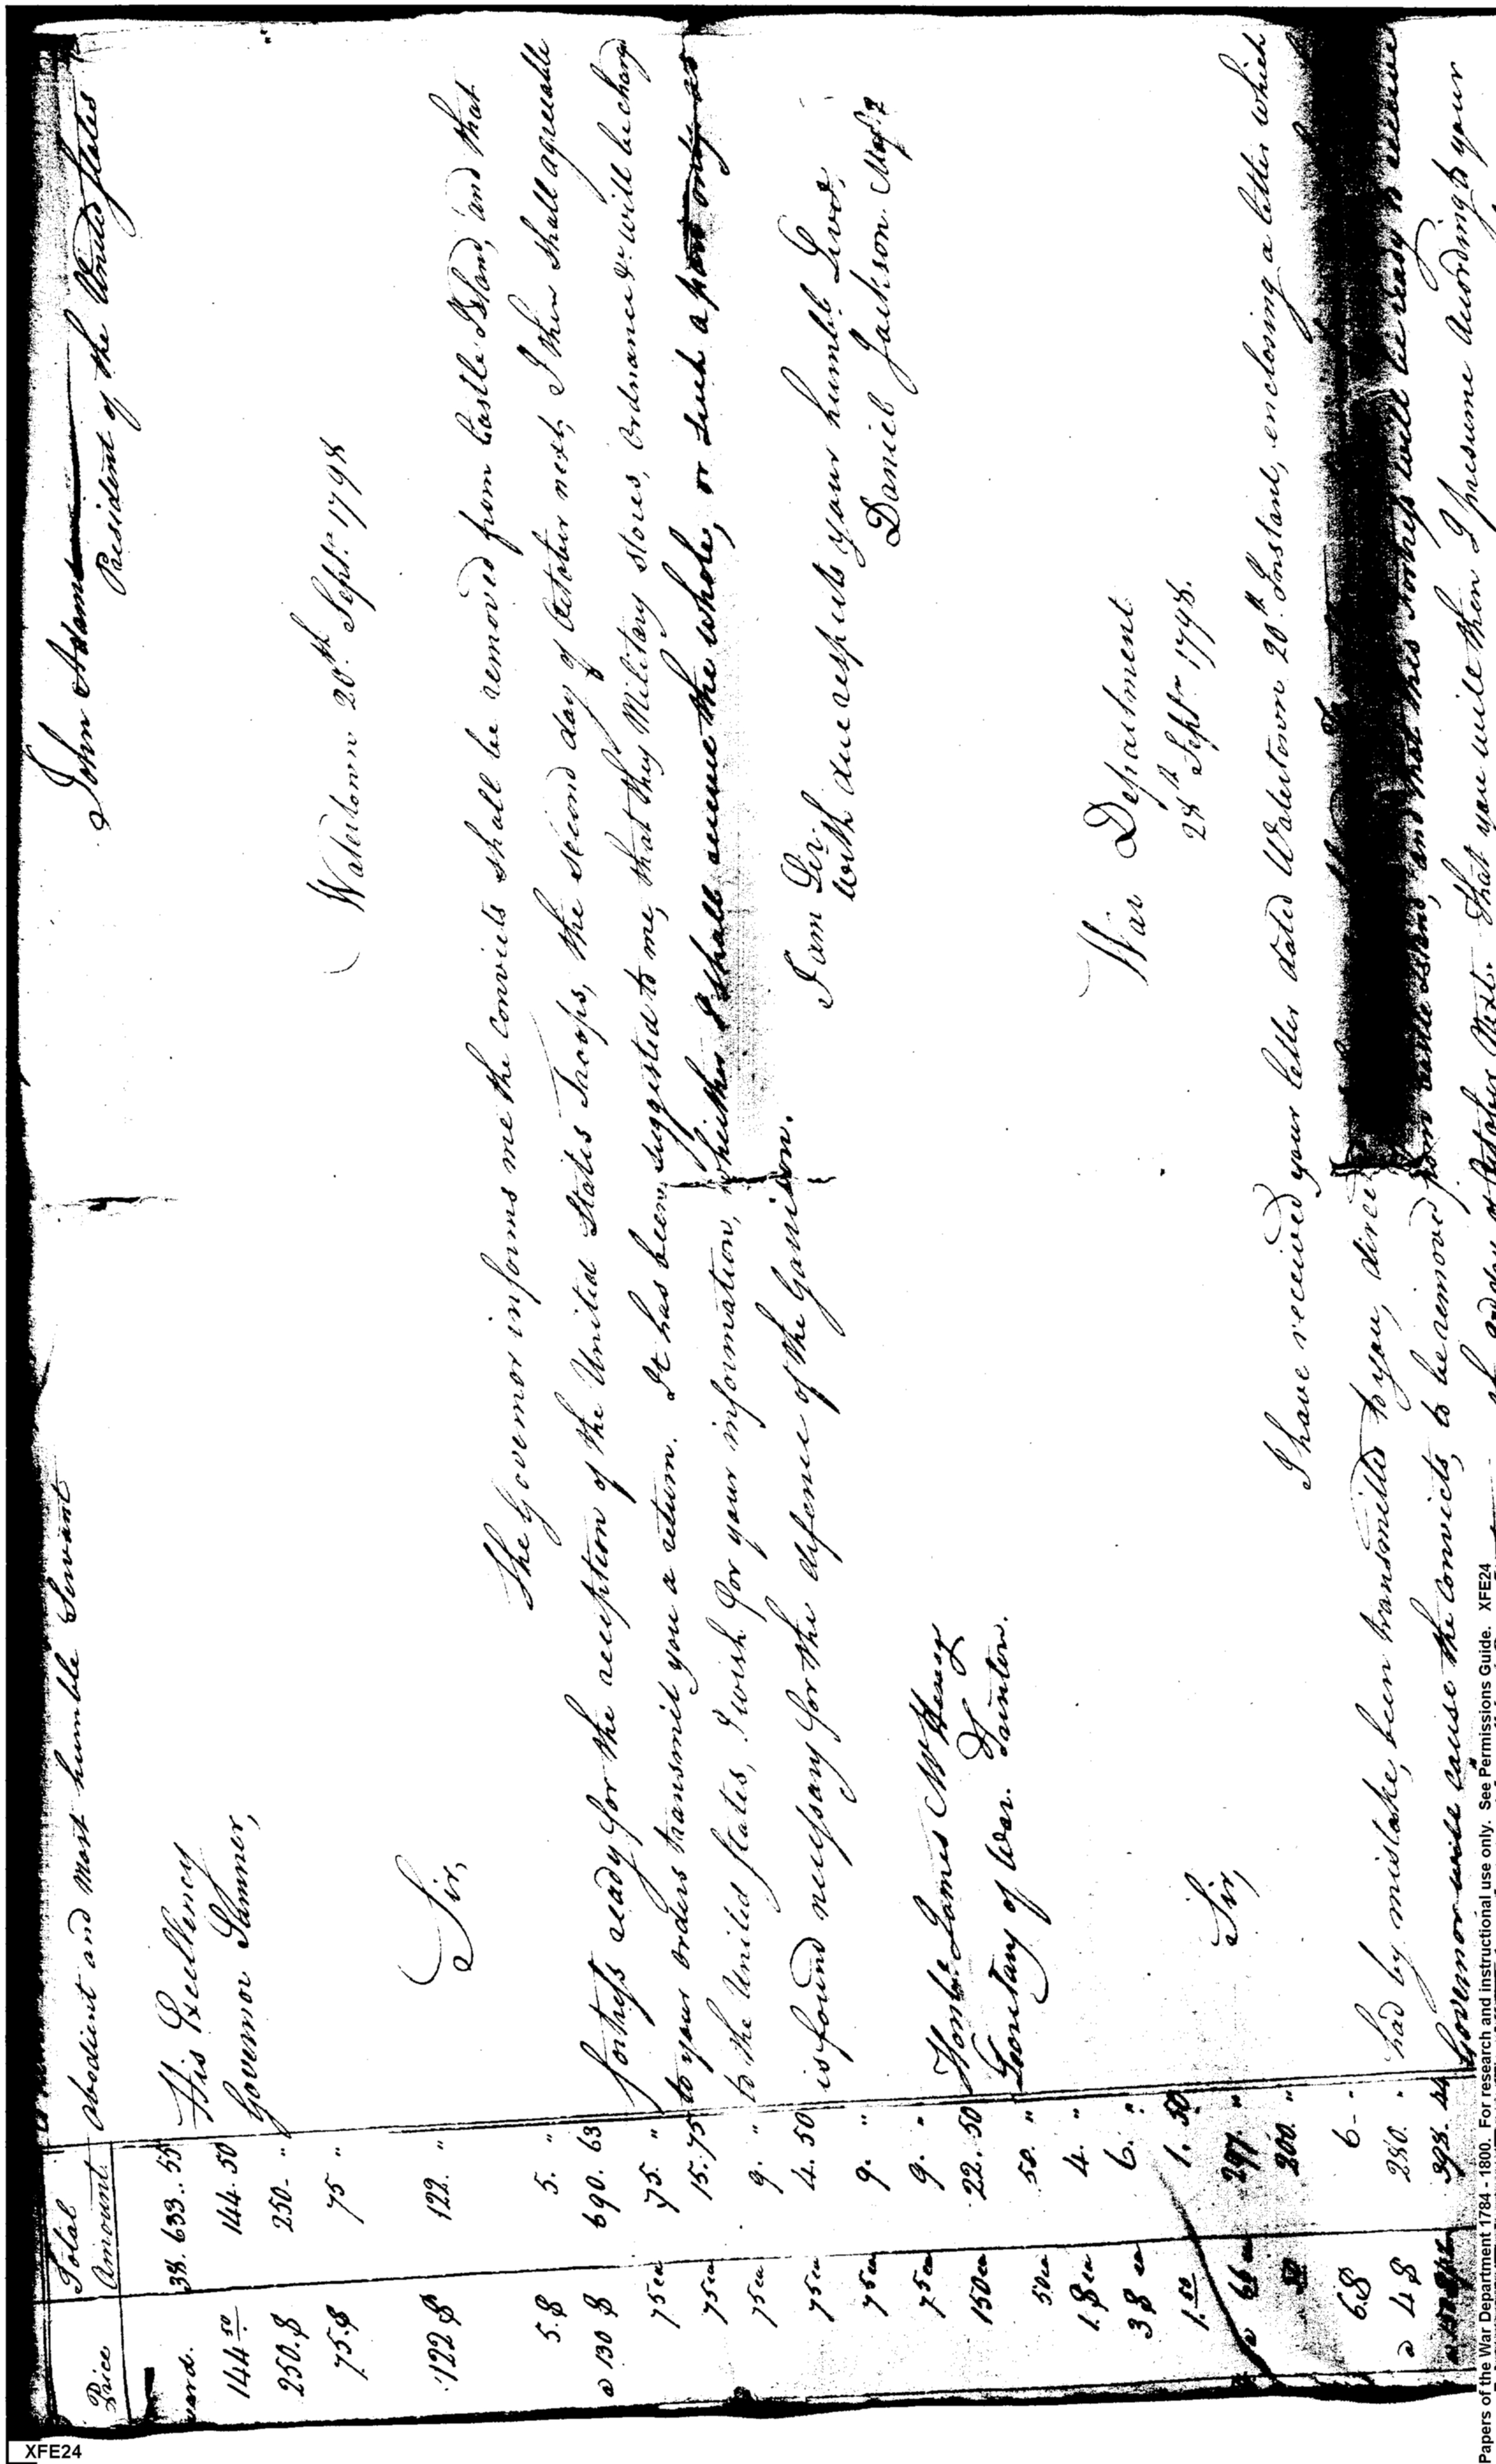 Abodient and Most humble Servant
John Adams
President of the United States
His Excellency
Governor Sumner,
Watertown 20th Septr. 1798
Sir,
The Governor informs me the convicts shall be removed from Castle Island, and that
fortress ready for the reception of the United States Troops, the second day of October next, I then shall agreeable
to your orders transmit you a return. It has been suggested to me, that they Military stores, Ordnance &c. will be charged
to the United States, I wish for your information, whether I shall receive the whole, or such a part only as
is found necessary for the defence of the Garrison.
I am Sir.
with due respects your humbl. Servt,
Daniel Jackson. Majr
Honble. James McHenry
Secretary of War. Trinton.
War Department
28th Septr 1798.
Sir,
I have received your letter dated Watertown 20th. Instant, enclosing a letter which
had by mistake, been transmitted to you,
Governor will cause the Convicts, to be removed from Castle Island, and that this Fortress will be ready to receive
2nd day of October Next. That you will then I presume According to your
Price
Total
Amount.
yard.
38. 633.. 55
144.50
144. 50
250.$
250. "
75.$
75 "
122 $
122. "
5.$
5. "
@ 130 $
690. 63
75 ea
75. "
75 ea
15. 75
75 ea
9. "
75 ea
4. 50
75 ea
9. "
75 ea
9. "
150 ea
22. 50
50 ea
50. "
1.$ ea
4. "
3 $ ea
6. "
1.50
1. 50
@ 66 ea
297. "
200. "
6.$
6. "
@ 4 $
280. "
398. 44
XFE24
Papers of the War Department 1784 - 1800. For research and instructional use only. See Permissions Guide. XFE24